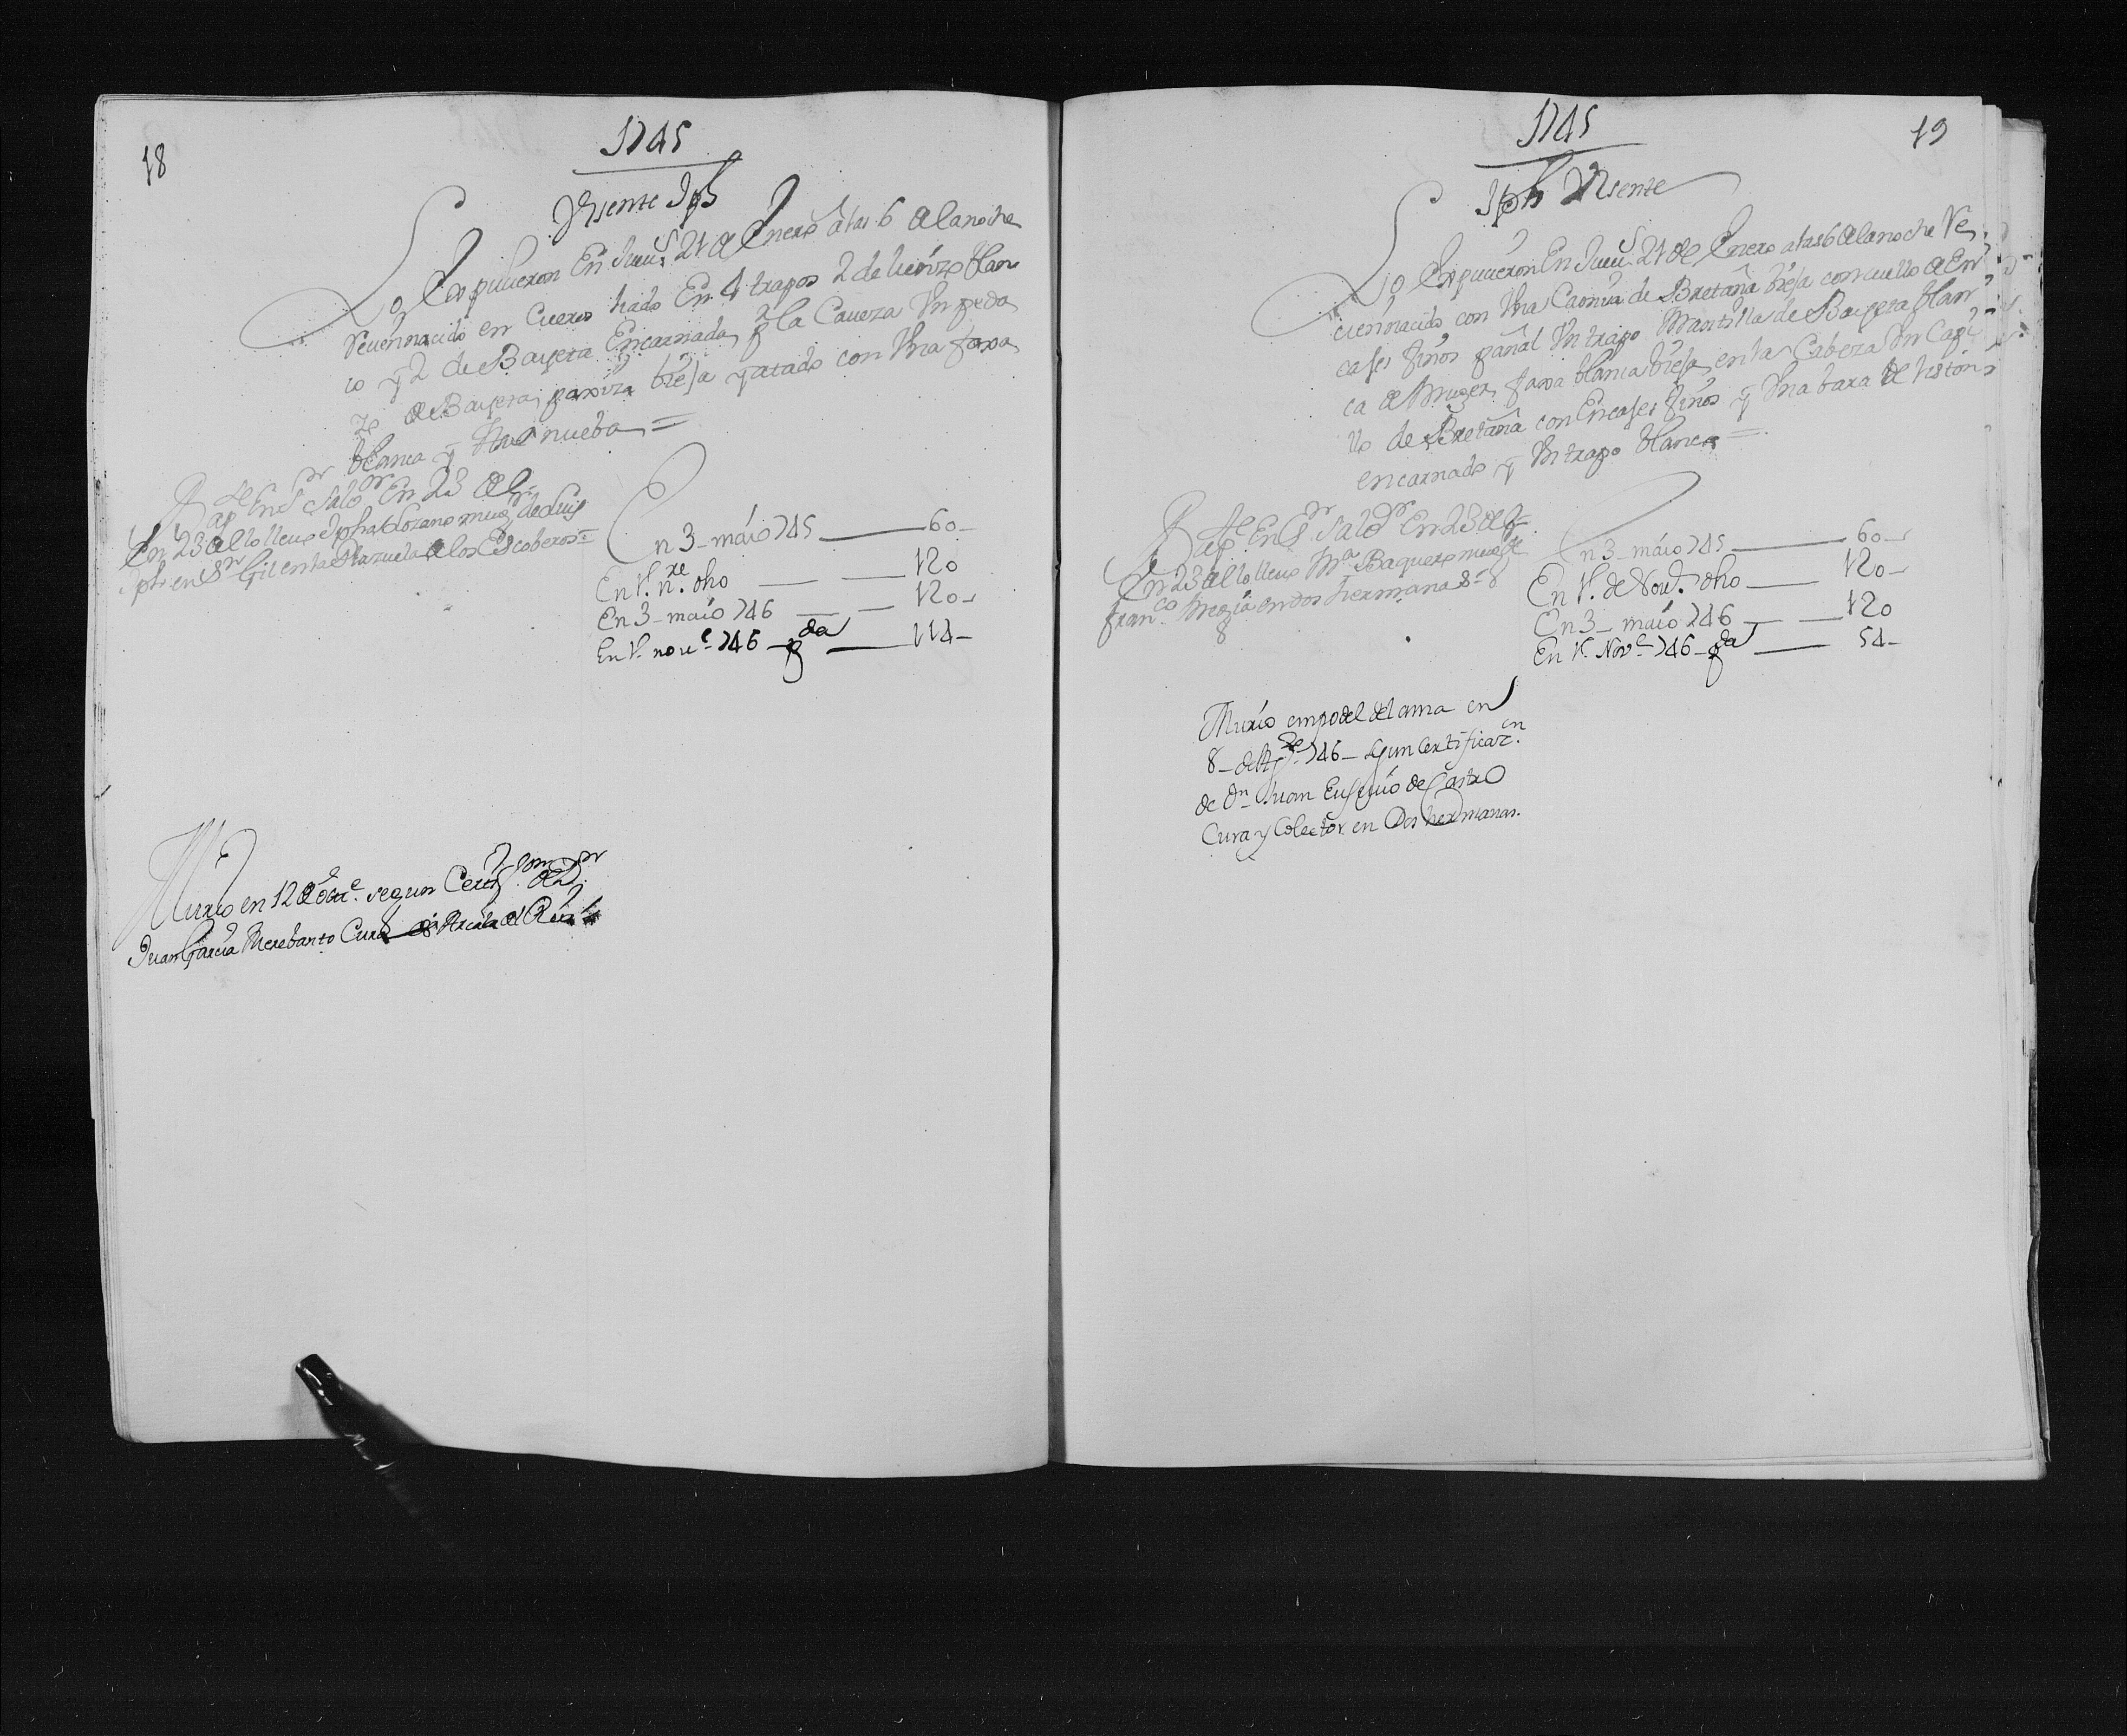 18
1745
Visente Jph
Lo Expusieron En Juev.s 21 de Enero a las 6 de la noche
Reciennacido en Cueros liado En 4 trapos 2 de lienzo blan
co y 2 de Bayeta Encarnada, pª la Caveza Un peda
zo de Bayeta, parviza biesa y atado con Una faxa
blanca y nueba =
Bapᵉ En Sʳ Salᵒʳ En 23 de
En 23 de llo lleuo Jpha Lozano mug.ʳ de Luis
Jph. en Sⁿ Gil en la Plazuela de los Escoberos =
En 3_ máio 745 — 60_
En 1.º nʳᵉ. dho — 120
En 3_ maio 746 — 120_
En 1.º novᵉ 746 _ pᵈᵃ — 114_
Murio en 12 de octᵉ. segun Certifᶜᵒⁿ de Dⁿ
Juan Garcia Merebanto Cura de Alcala del Rio
19
1745
Jph Visente
Lo Expusieron En Juev.s 21 de Enero a las 6 de la noche Re
ciennacido con Una Camisa de Bretaña biesa con cuello de En
cajes finos pañal Un trapo Mantilla de Bayeta blan
ca de Muger, faxa blanca biesa, en la Cabeza Un Capi
llo de Bretaña con Encajes finos y Una bara de liston
encarnado y Un trapo blanco =
Bapᵉ En Sʳ Salᵒʳ En 23 de
En 23 de llo lleuo Mᵃ Baquero mug.ʳ de
Franᶜᵒ Mexia en dos hermanas =
En 3_ máio 745 — 60_
En 1.º de Nov.ᵉ dho — 120_
En 3_ máio 746 — 120
En 1.º Novᵉ 746_ pᵈᵃ — 54_
Murio em podel del ama en
8_ de 746_ segun Certificazᵒⁿ
de Dⁿ Juan Eusevio de Castro
Cura y Colector en Dos hermanas.